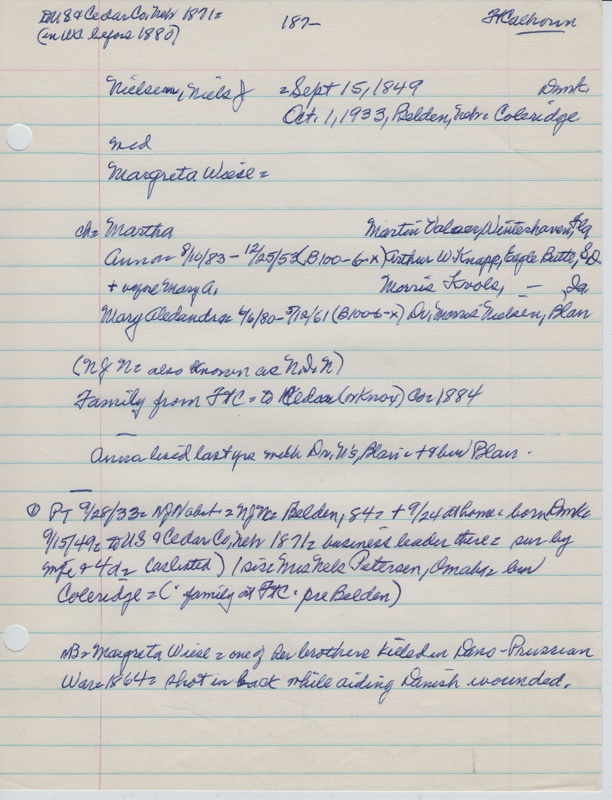 to US & Cedar Co, Nebr 1871= 187- Ft Calhoun
(in US before 1880)
Nielsen, Niels J = Sept 15, 1849 Dmk
Oct. 1, 1933, Belden, Nebr = Coleridge
md
Margreta Wiese =
ch = Martha Martin Valaer, Winterhaven, Fla
Anna = 8/10/83 - 12/25/53 (B100-6-x) Arthur W Knapp, Eagle Butte, S.D.
+ before Mary A. Morris Kvols, — Ia
Mary Aledandra = 6/6/80 - 5/12/61 (B100-6-x) Dr. Morris Nielsen, Blair
(NJN = also known as N.J.N)
Family from FtC = to Cedar (or Knox) Co = 1884
Anna lived last yrs with Dr. N's, Blair = + + bur Blair.
① PT 9/28/33 = NJN obit = NJN = Belden, 84 = + 9/24 at home = born Dmk
9/15/49 = to US & Cedar Co, Nebr 1871 = business leader there = sur by
wife & 4 d = (as listed) / sis = Mrs Nels Petersen, Omaha = bur
Coleridge = (: family at FtC = pre Belden)
NB = Margreta Wiese = one of her brothers killed in Dano-Prussian
War = 1864 = shot in back while aiding Danish wounded.